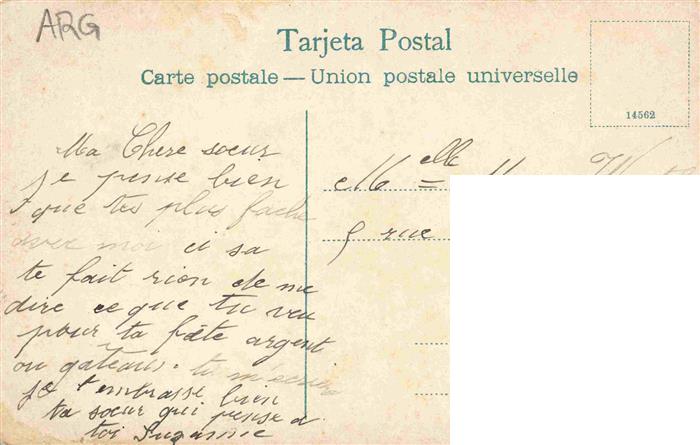 ARG
Tarjeta Postal
Carte postale — Union postale universelle
14562
Ma Chere soeur
je pense bien
que tes plus faché
avec moi ci sa
te fait rien de me
dire ce que tu veu
pour ta fâte argent
ou gâteaus. tu m'ecriras
je t'embrasse bien
ta soeur qui pense a
toi Suzanne
Melle
9 rue